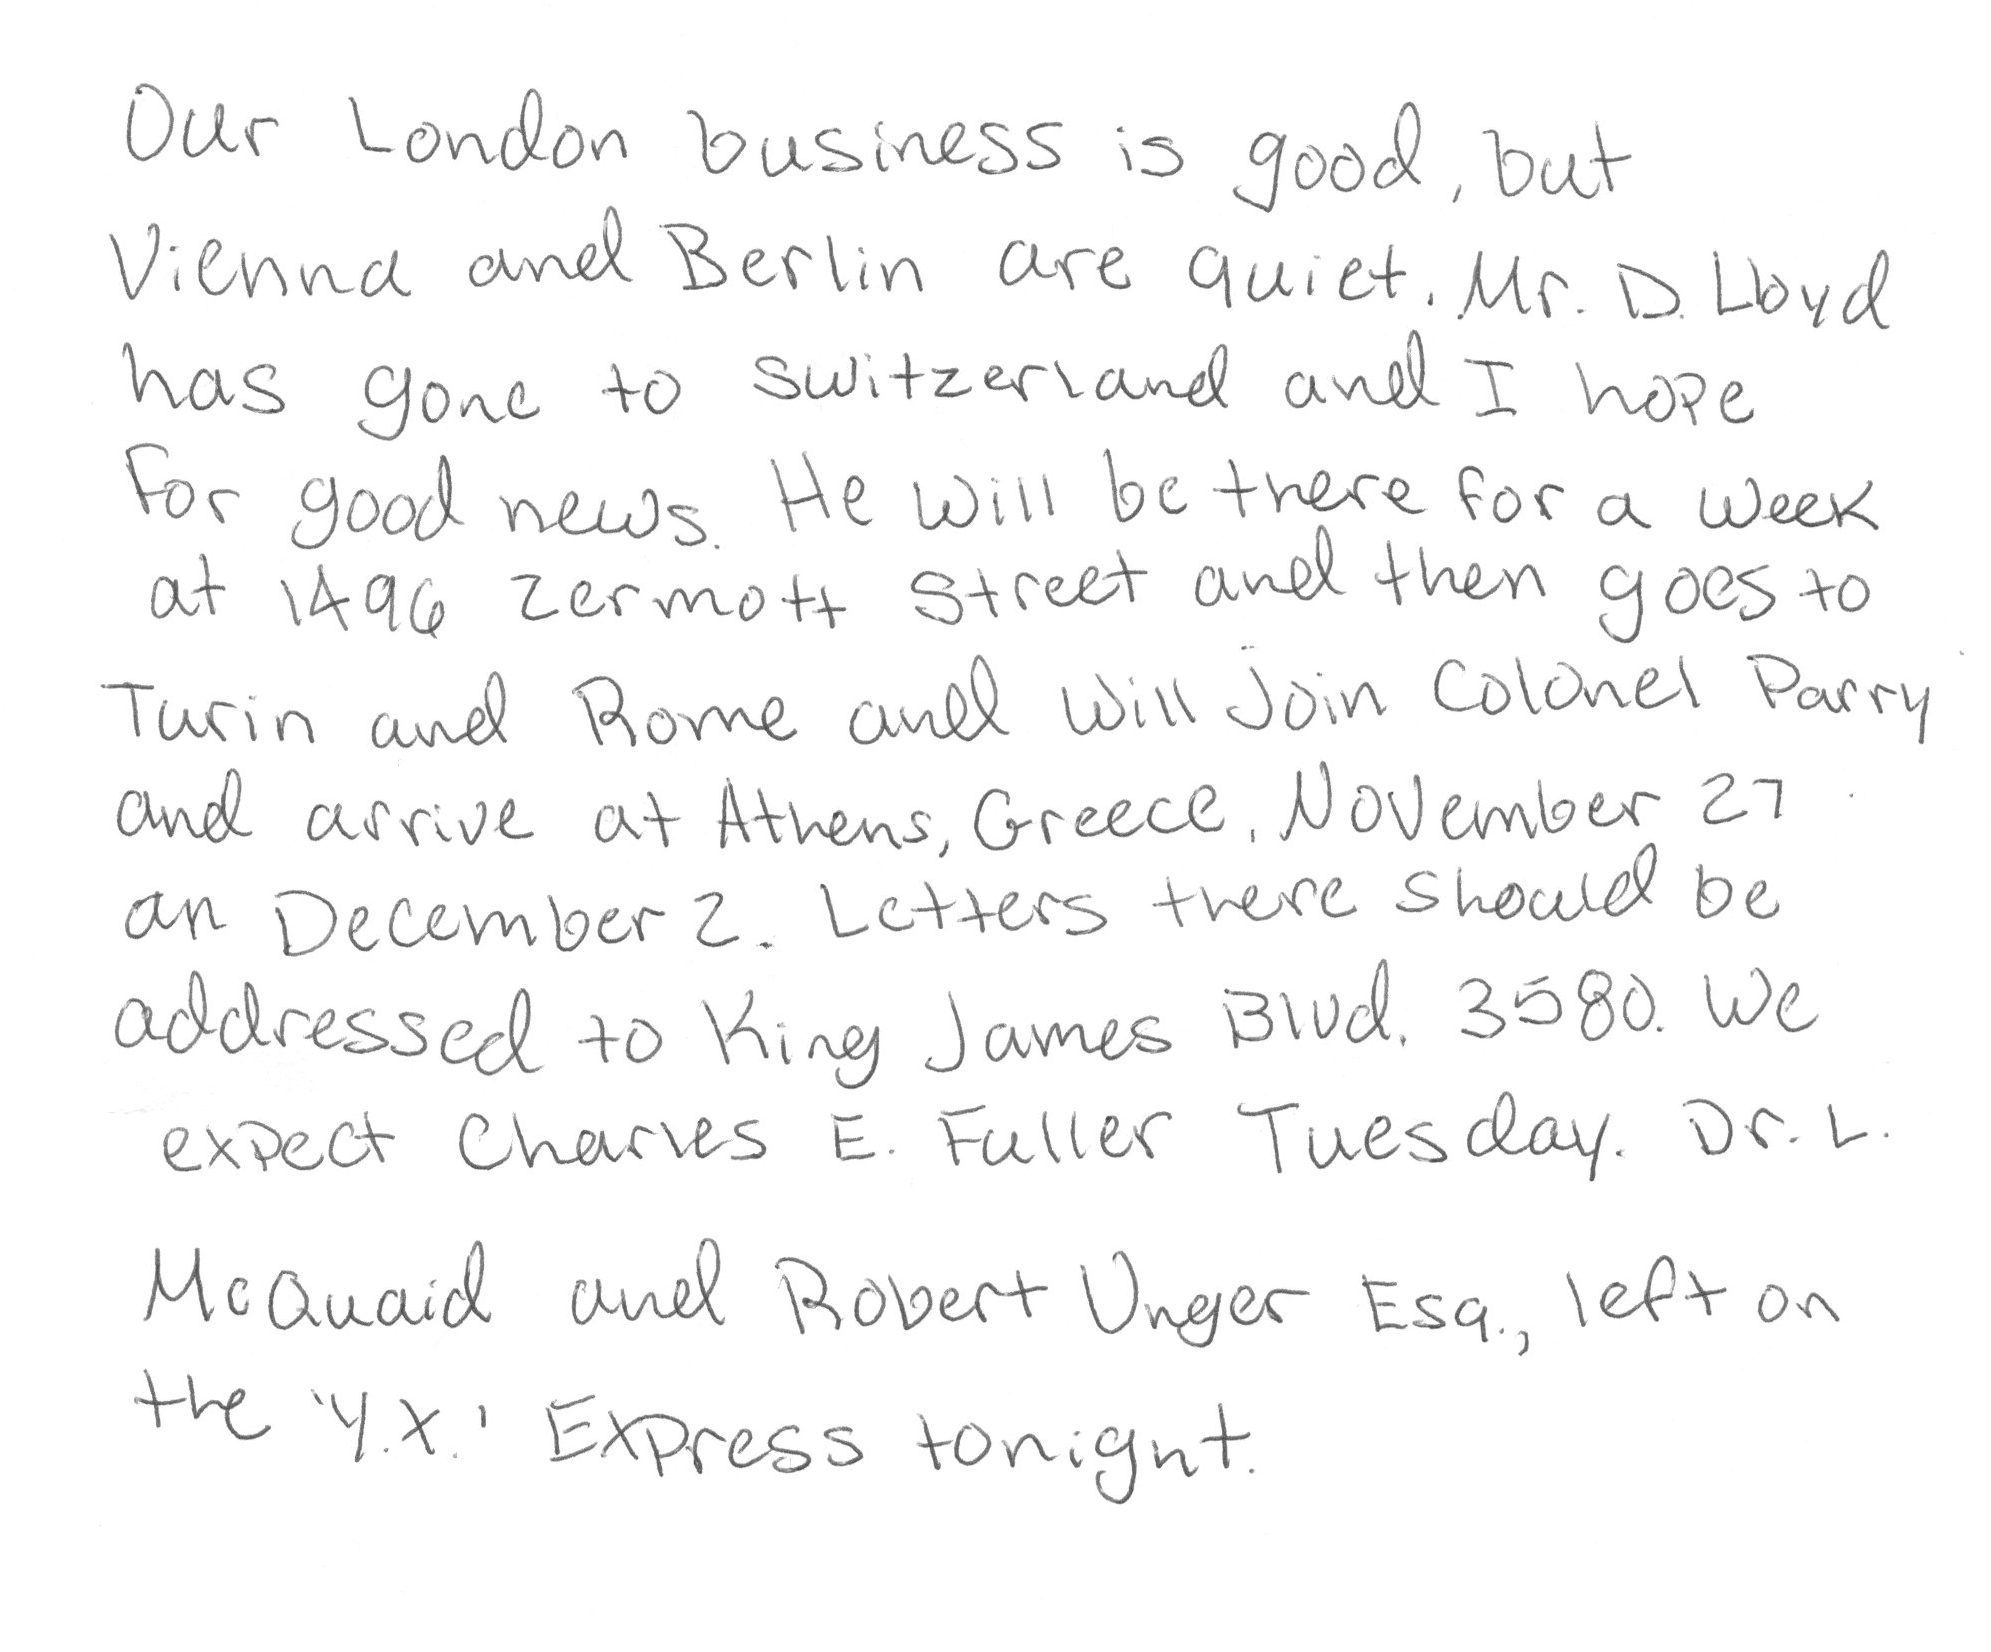 Our London business is good, but
Vienna and Berlin are quiet. Mr. D. Lloyd
has gone to Switzerland and I hope
for good news. He will be there for a week
at 1496 Zermott Street and then goes to
Turin and Rome and will join Colonel Parry
and arrive at Athens, Greece, November 27
an December 2. Letters there should be
addressed to King James Blvd. 3580. We
expect Charles E. Fuller Tuesday. Dr. L.
McQuaid and Robert Unger Esq., left on
the 'Y.X.' Express tonight.